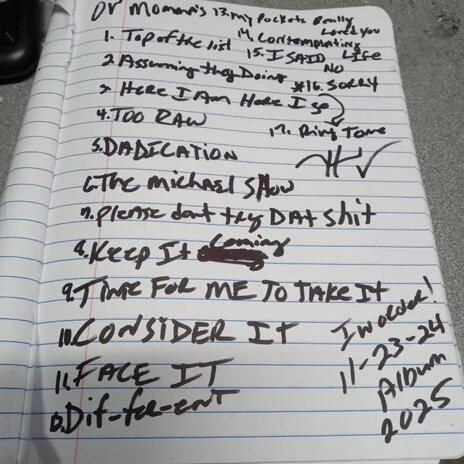 Or Moment's 13. my Pockets Really
Loved you
14. Contemplating
Life
1. Top of the list
15. I SAID
NO
2. Assuming they Doing
*16. SORRY
3. Here I Am Here I go
4. TOO RAW
17. Ring Tone
5. DADICATION
6. The Michael SHow
7. Please dont try DAt shit
8. Keep It Coming
9. TIME FOR ME TO TAKE IT
10. CONSIDER IT
11. FACE IT
Dif-fer-ent
11-23-24
Album
2025